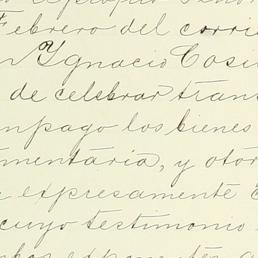 Febrero del corrie
Ygnacio Cosi
de celebrar trans
npago los bienes
mentaria, y otor
expresamente
cuyo testimonio